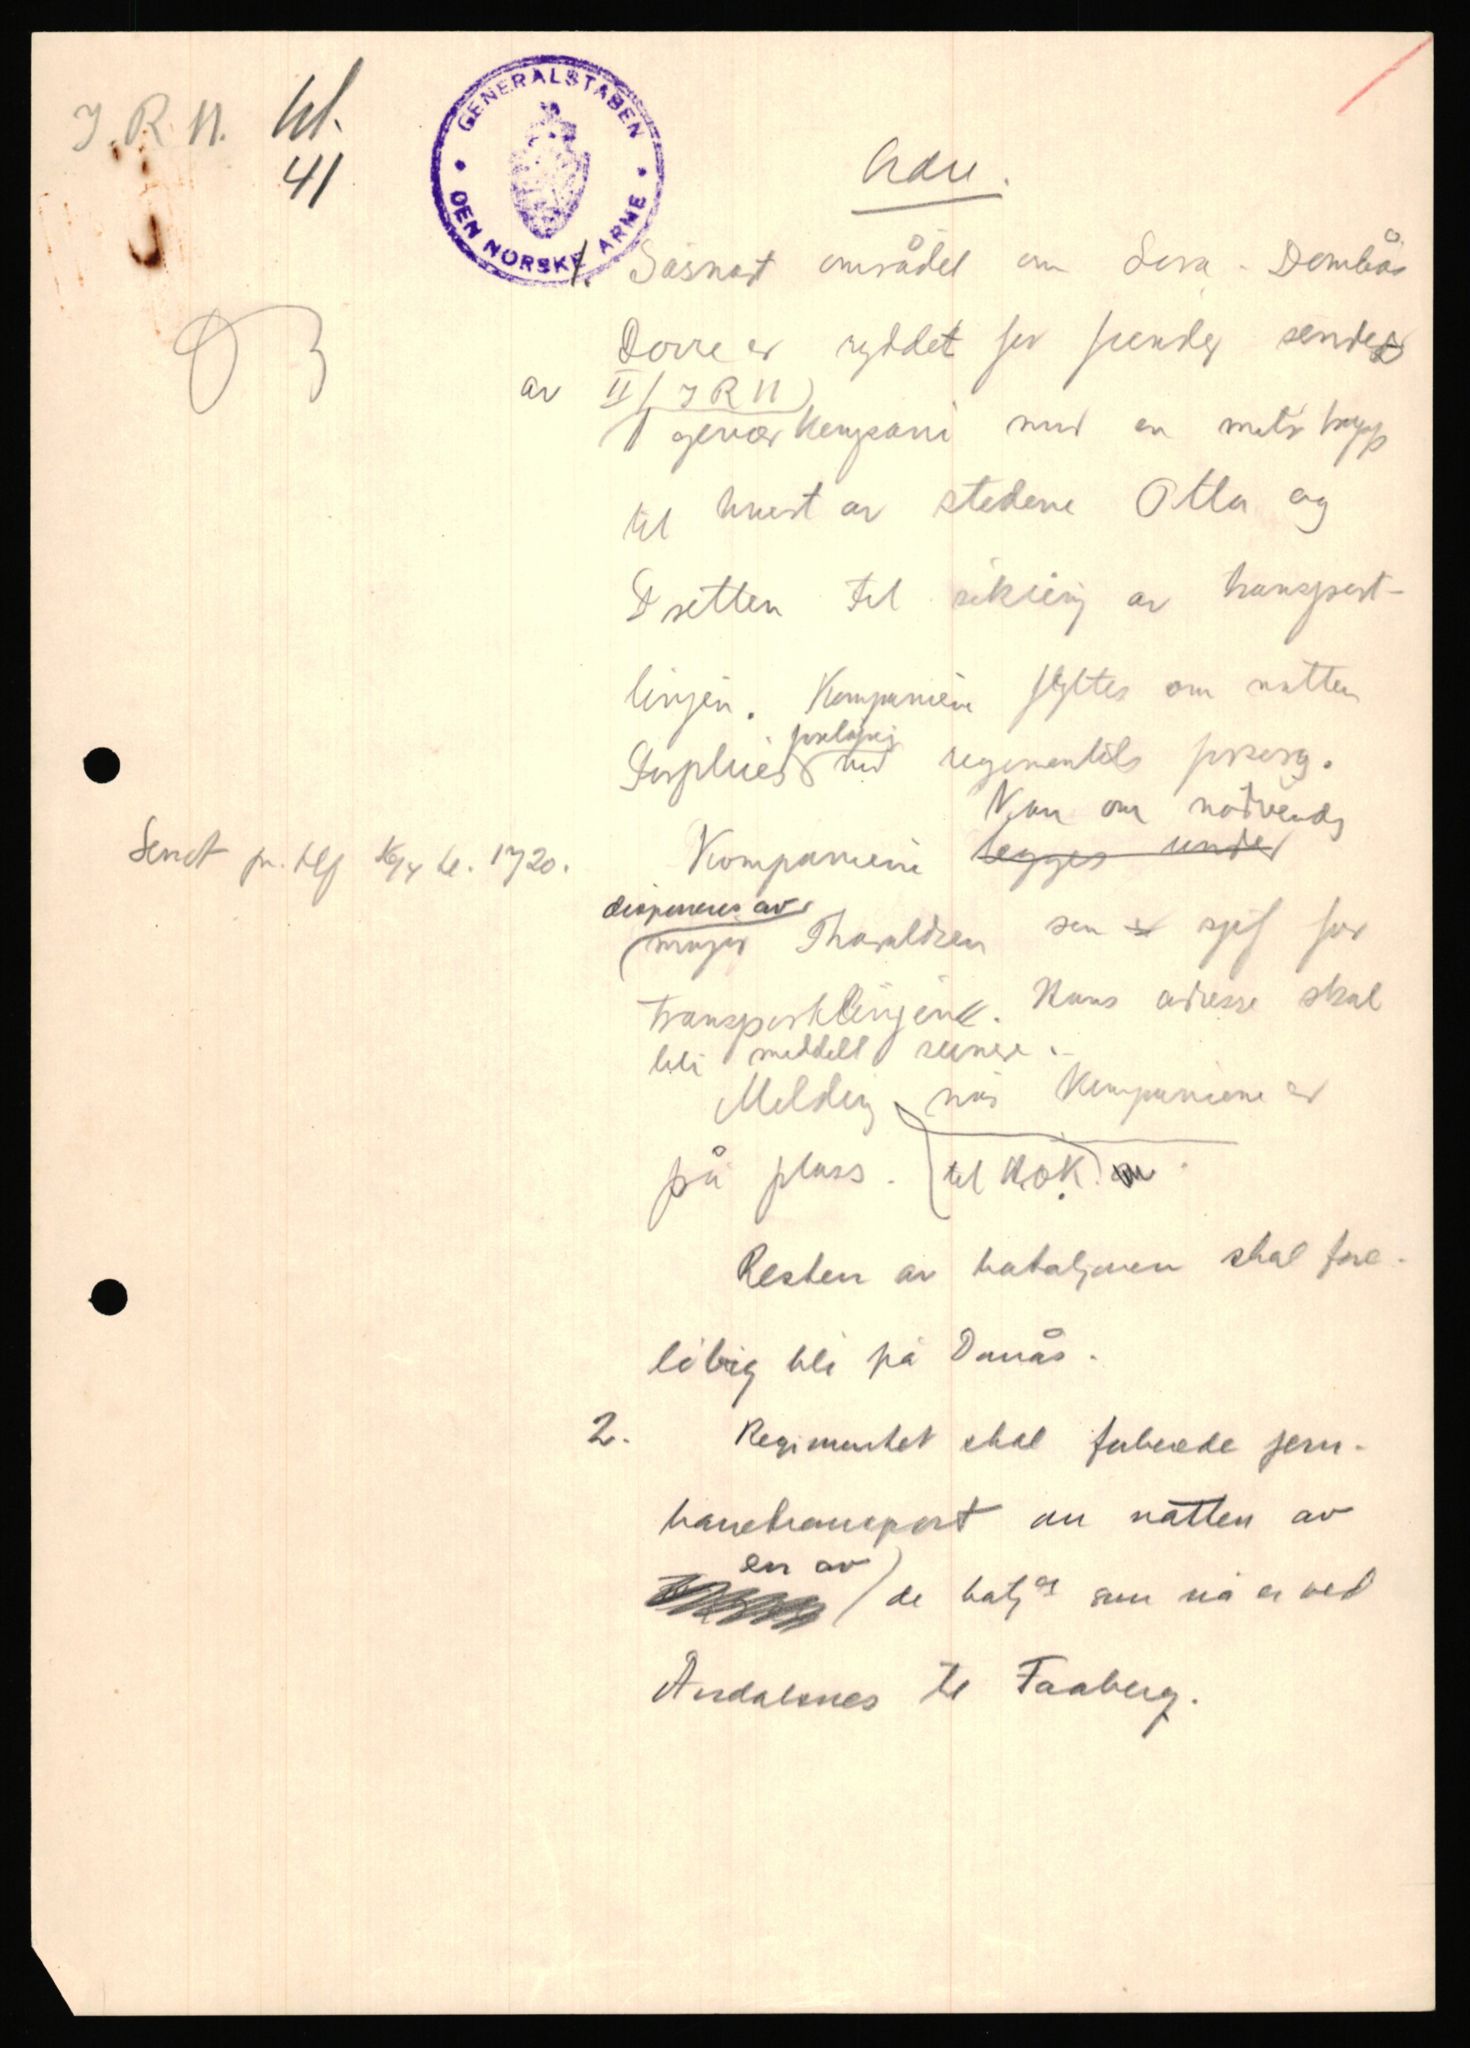 J.R.11. kl.
41
GENERALSTABEN
DEN NORSKE ARME
Ordre.
1. Såsnart området om Lora - Dombås
Dovre er ryddet for fiender sendes
av II/J R 11)
1 geværkompani med en mitr tropp
til hvert av stedene Otta og
Dretten til sikring av transport-
linjen. Kompaniene flyttes om natten
foreløpig
Forpleies ved regimentets forsorg.
Kan om nødvendig
Sendt pr. tlf 16/4 kl. 1720.
Kompaniene legges under
disponeres av
major Tharaldsen som er sjef for
transportlinjene. Hans adresse skal
bli meddelt senere.
Melding når kompaniene er
på plass. til H.O.K.
Resten av bataljonen skal fore-
löbig bli på Dombås.
2. Regimentet skal forberede jern-
banetransport om natten av
en av
de batjer som nå er ved
Åndalsnes til Faaberg.